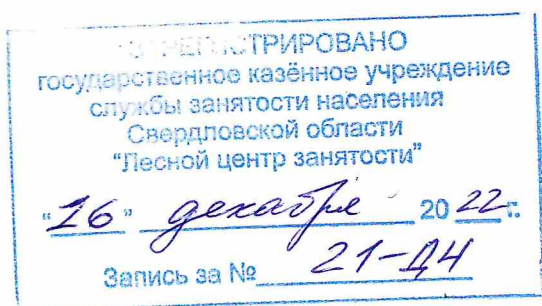 ЗАРЕГИСТРИРОВАНО
государственное казённое учреждение
службы занятости населения
Свердловской области
"Лесной центр занятости"
"16" декабря 2022 г.
Запись за № 21-Д4